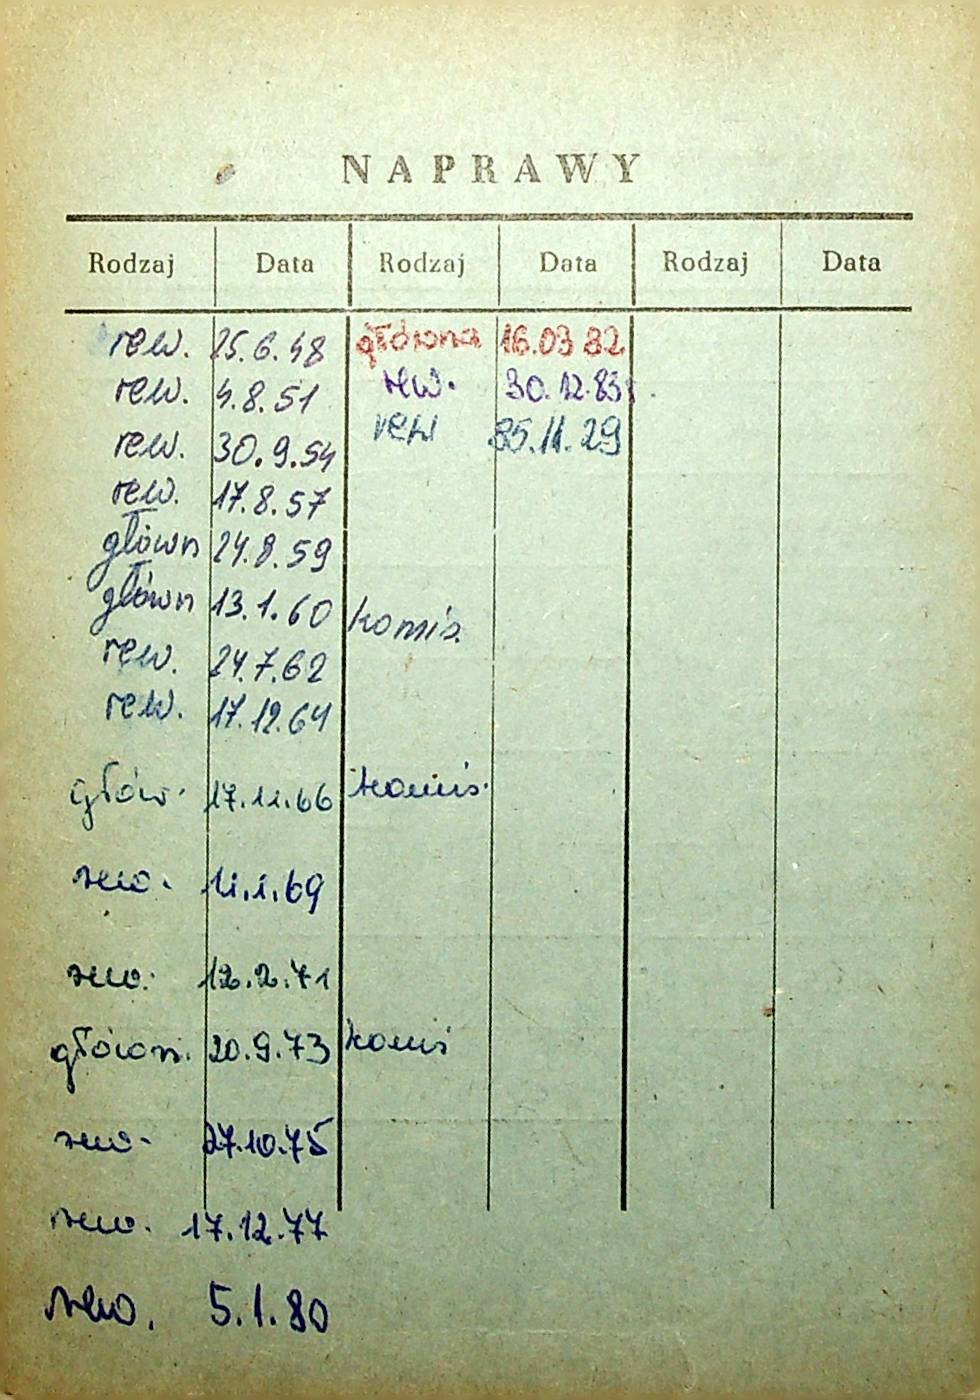 NAPRAWY
Rodzaj Data Rodzaj Data Rodzaj Data
rew. 25.6.48 główna 16.03 82
rew. 4.8.51 rew. 30.12.83
rew. 30.9.54 rew 85.11.29
rew. 17.8.57
główn 24.8.59
główn 13.1.60 komis.
rew. 24.7.62
rew. 17.12.64
głów. 17.11.66 komis.
rew. 11.1.69
rew. 12.2.71
główn. 20.9.73 komis
rew. 27.10.75
rew. 17.12.77
rew. 5.1.80